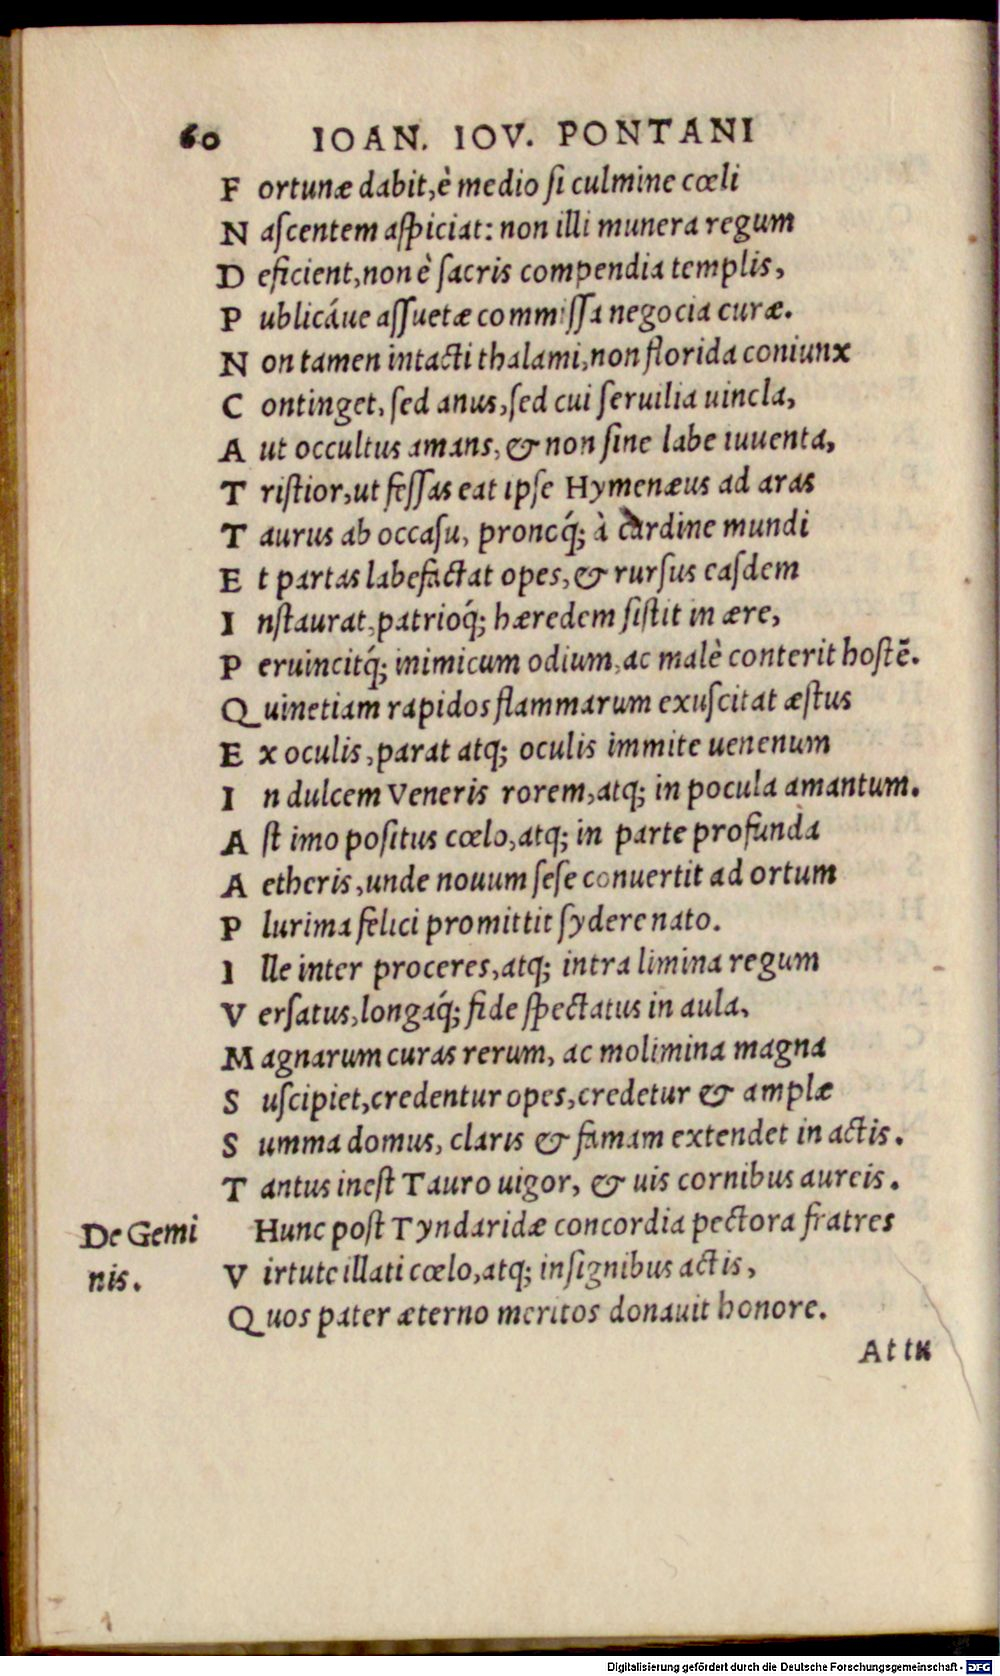 60 IOAN. IOV. PONTANI
Fortunæ dabit, è medio ſi culmine cœli
Naſcentem aſpiciat: non illi munera regum
Deficient, non è ſacris compendia templis,
Publicáue aſſuetæ commiſſa negocia curæ.
Non tamen intacti thalami, non florida coniunx
Continget, ſed anus, ſed cui ſeruilia uincla,
Aut occultus amans, & non ſine labe iuuenta,
Triſtior, ut feſſas eat ipſe Hymenæus ad aras
Taurus ab occaſu, pronoq́; à cardine mundi
Et partas labefactat opes, & rurſus eaſdem
Inſtaurat, patrioq́; hæredem ſiſtit in ære,
Peruincitq́; inimicum odium, ac malè conterit hoſtē.
Quinetiam rapidos flammarum exuſcitat æſtus
Ex oculis, parat atq; oculis immite uenenum
In dulcem Veneris rorem, atq; in pocula amantum.
Aſt imo poſitus cœlo, atq; in parte profunda
Aetheris, unde nouum ſeſe conuertit ad ortum
Plurima felici promittit ſydere nato.
Ille inter proceres, atq; intra limina regum
Verſatus, longaq́; fide ſpectatus in aula,
Magnarum curas rerum, ac molimina magna
Suſcipiet, credentur opes, credetur & amplæ
Summa domus, claris & famam extendet in actis.
Tantus ineſt Tauro uigor, & uis cornibus aureis.
De Gemi Hunc poſt Tyndaridæ concordia pectora fratres
nis. Virtute illati cœlo, atq; inſignibus actis,
Quos pater æterno meritos donauit honore.
Attu
Digitalisierung gefördert durch die Deutsche Forschungsgemeinschaft - DFG